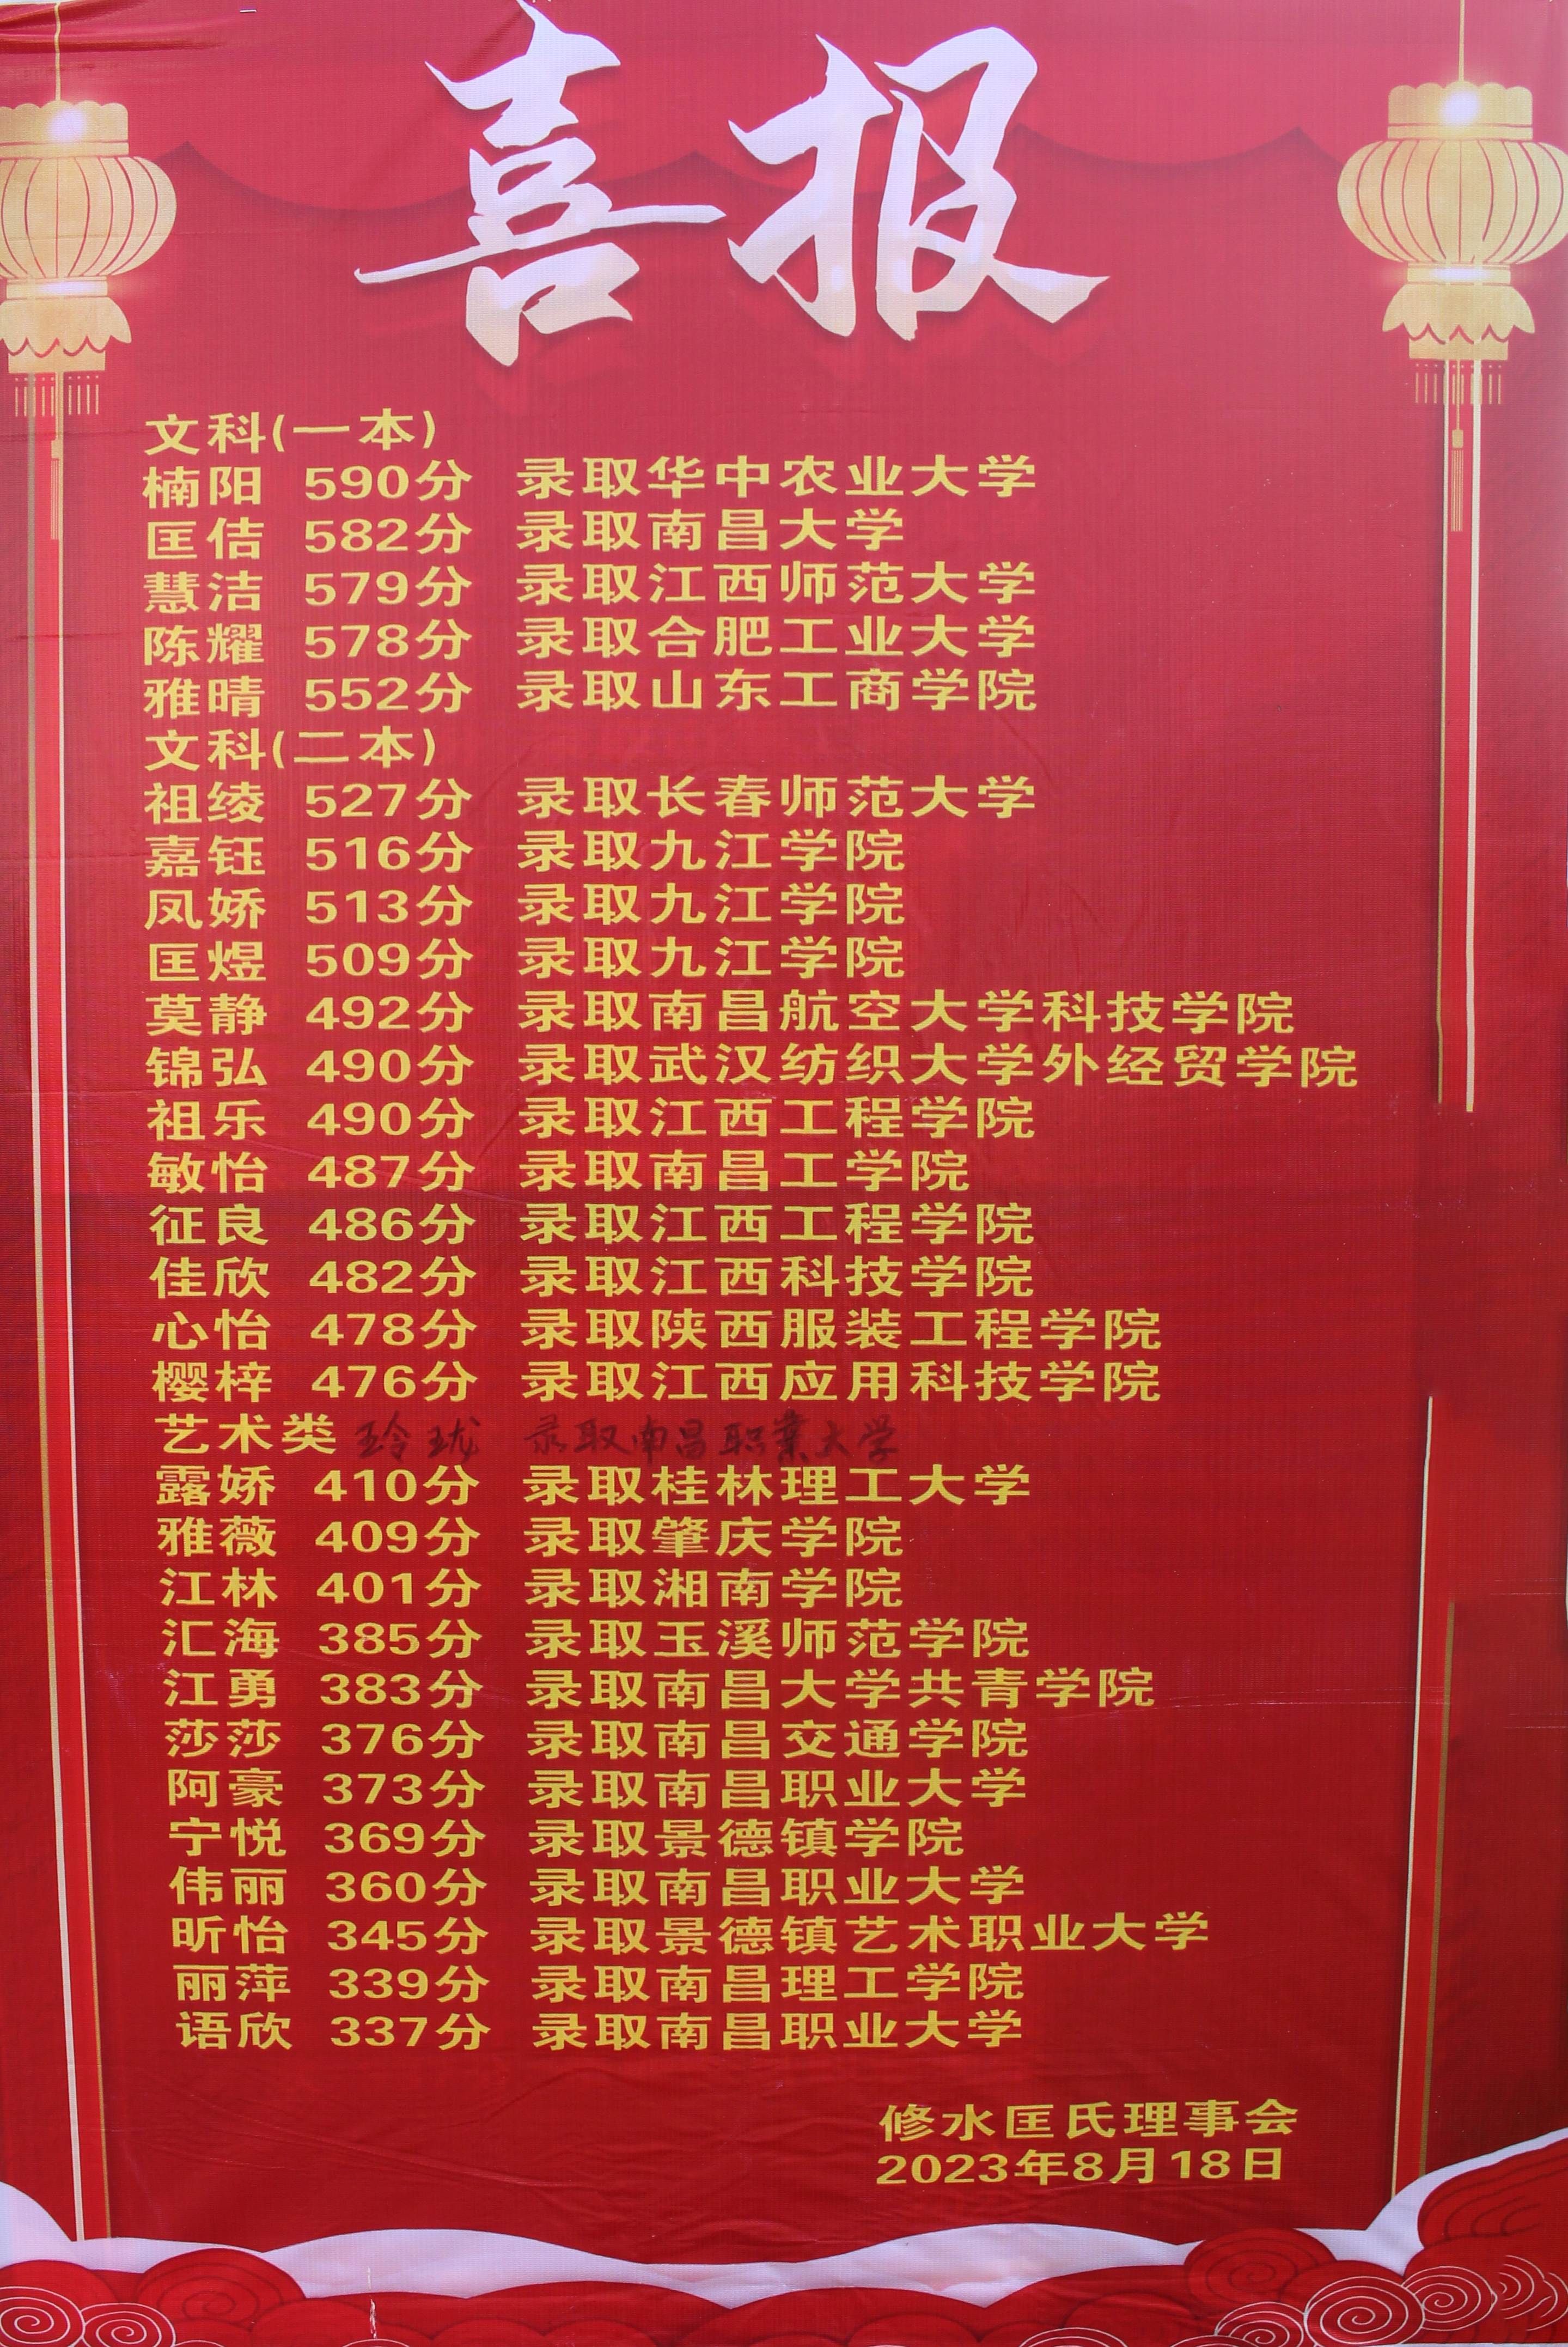 喜报
文科(一本)
楠阳 590分 录取华中农业大学
匡佶 582分 录取南昌大学
慧洁 579分 录取江西师范大学
陈耀 578分 录取合肥工业大学
雅晴 552分 录取山东工商学院
文科(二本)
祖绫 527分 录取长春师范大学
嘉钰 516分 录取九江学院
凤娇 513分 录取九江学院
匡煜 509分 录取九江学院
莫静 492分 录取南昌航空大学科技学院
锦弘 490分 录取武汉纺织大学外经贸学院
祖乐 490分 录取江西工程学院
敏怡 487分 录取南昌工学院
征良 486分 录取江西工程学院
佳欣 482分 录取江西科技学院
心怡 478分 录取陕西服装工程学院
樱梓 476分 录取江西应用科技学院
艺术类 玲珑 录取南昌职業大学
露娇 410分 录取桂林理工大学
雅薇 409分 录取肇庆学院
江林 401分 录取湘南学院
汇海 385分 录取玉溪师范学院
江勇 383分 录取南昌大学共青学院
莎莎 376分 录取南昌交通学院
阿豪 373分 录取南昌职业大学
宁悦 369分 录取景德镇学院
伟丽 360分 录取南昌职业大学
昕怡 345分 录取景德镇艺术职业大学
丽萍 339分 录取南昌理工学院
语欣 337分 录取南昌职业大学
修水匡氏理事会
2023年8月18日